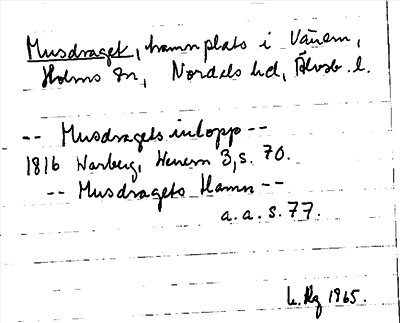 Musdraget, hamnplats i Vänern,
Holms sn, Nordals hd, Älvsb. l.
-- Musdragets inlopp --
1816 Warberg, Wenern 3, s. 70.
-- Musdragets Hamn --
a. a. s. 77.
1965.